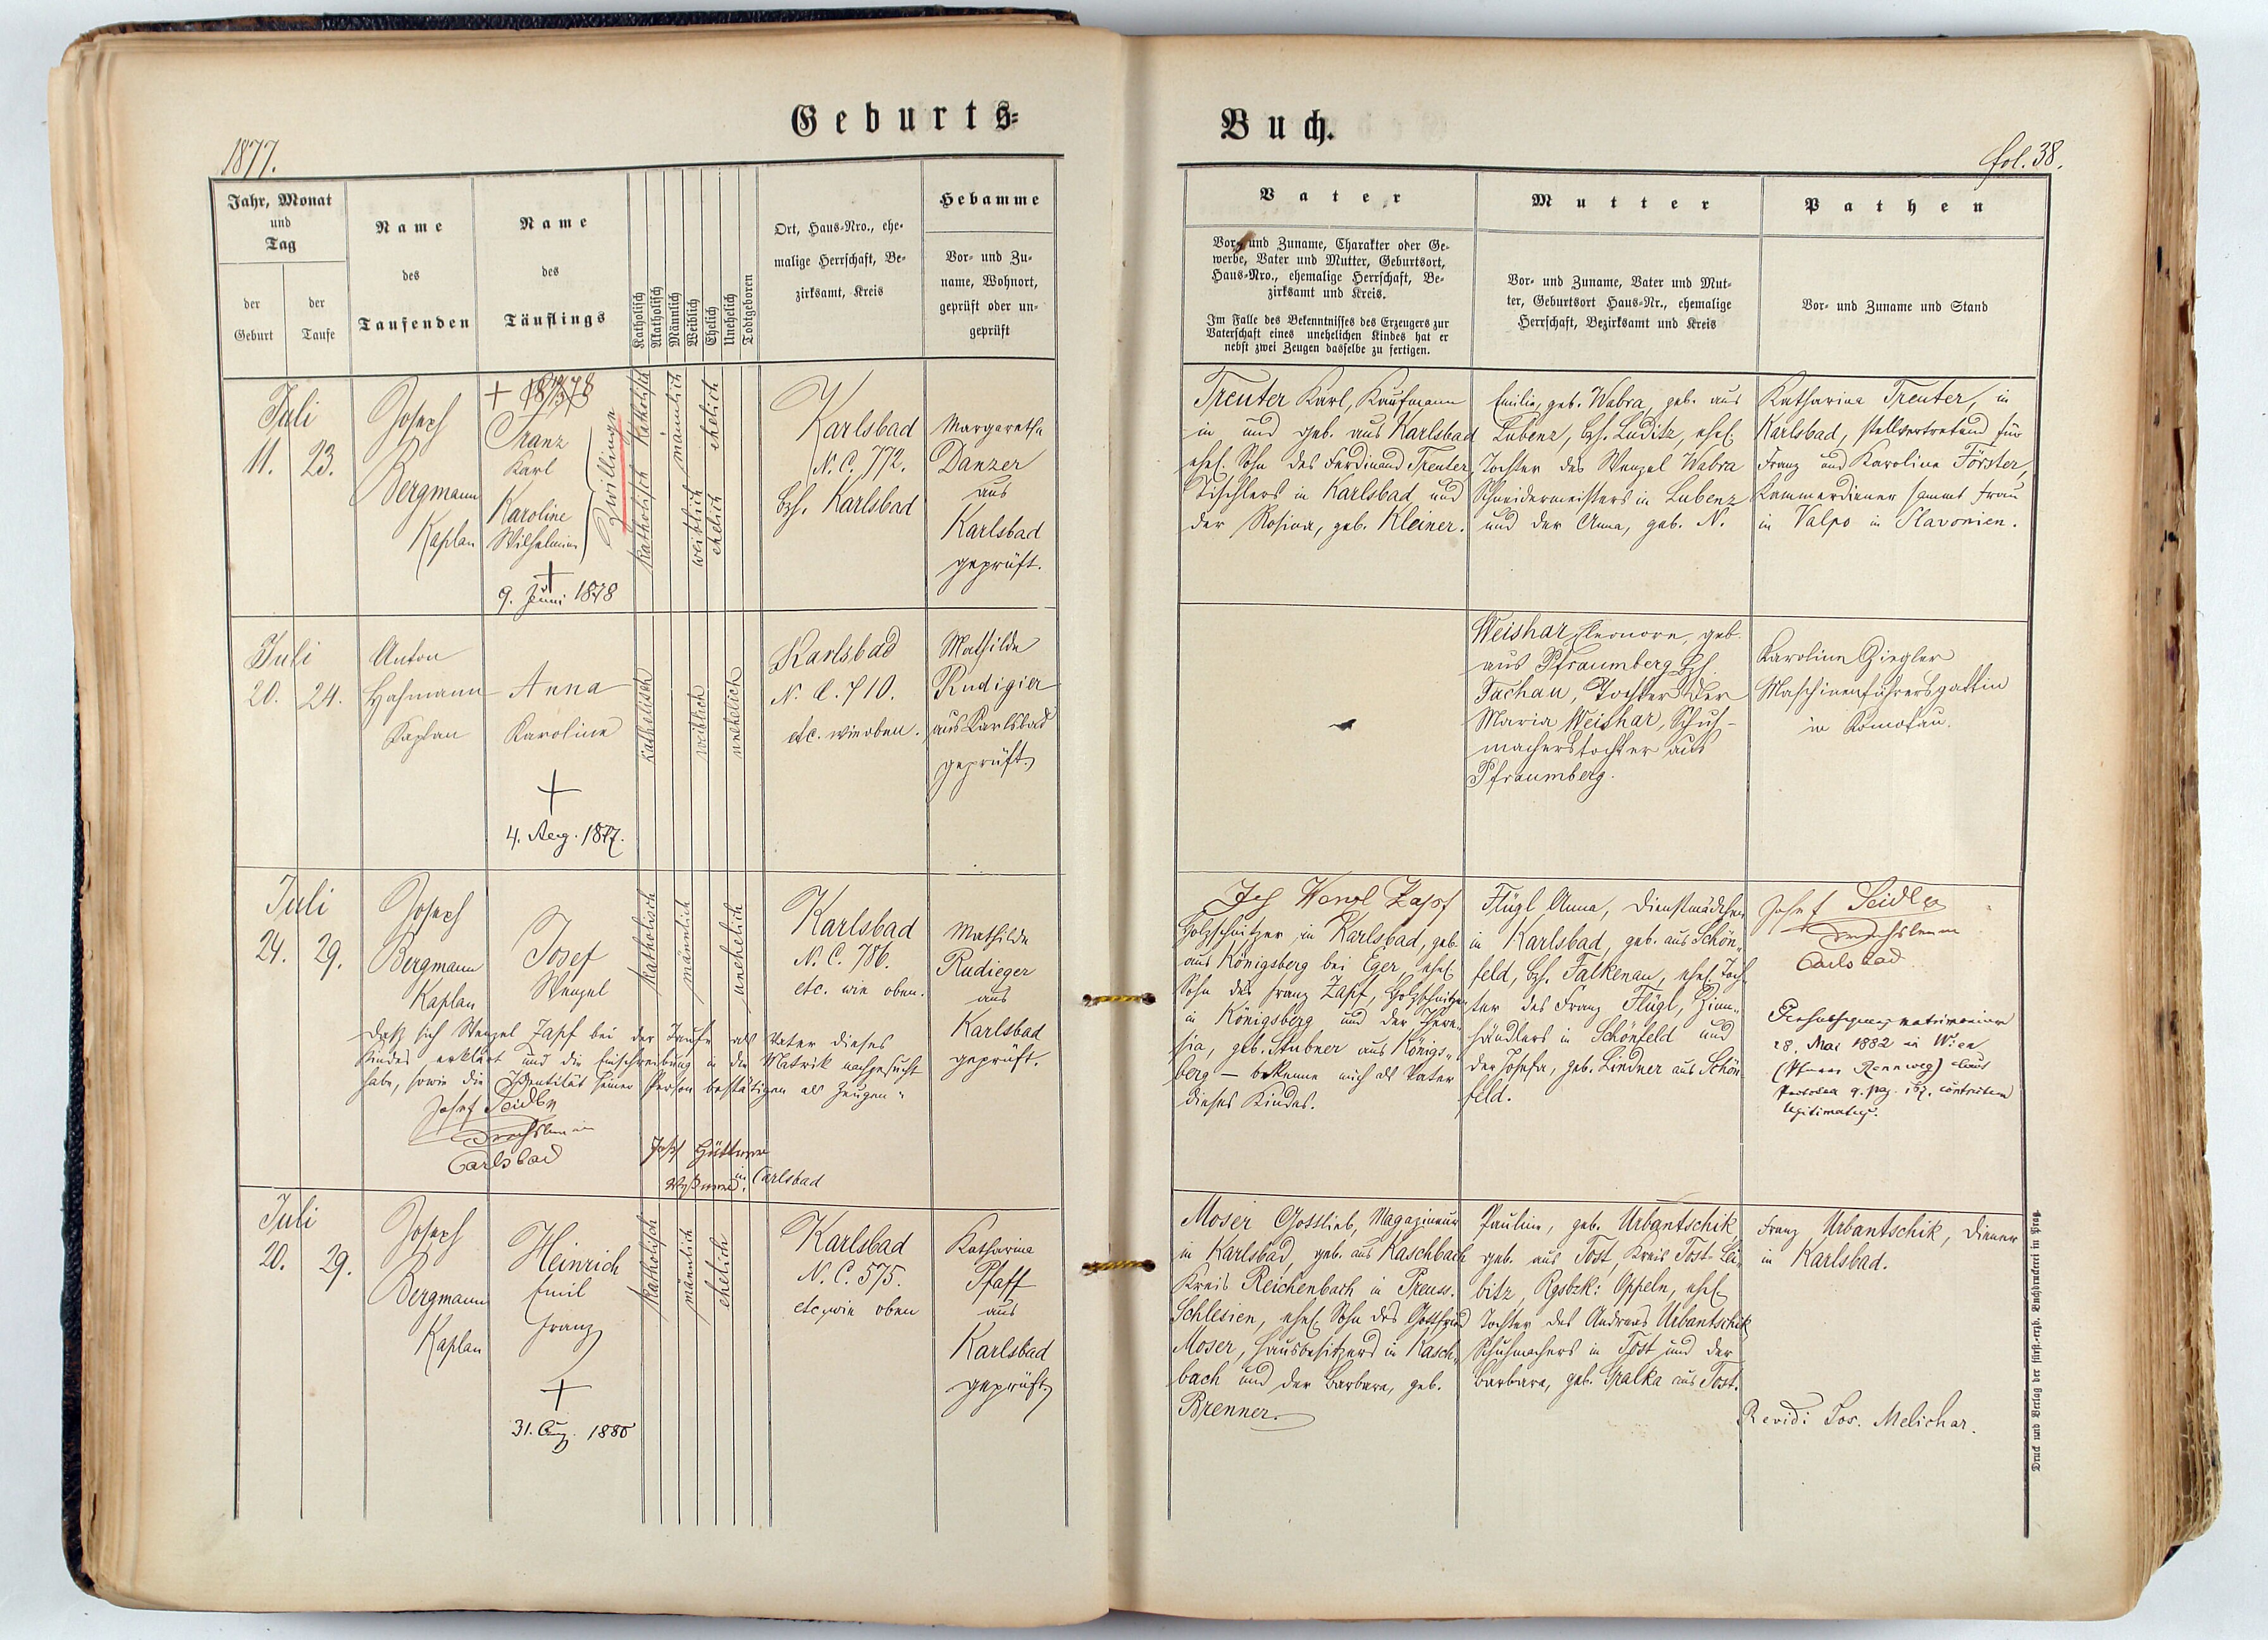 Geburts=
Buch.
1877.
fol. 38.
Jahr, Monat
und
Tag
der
Geburt
der
Taufe
Name
des
Taufenden
Name
des
Täuflings
Katholisch
Akatholisch
Männlich
Weiblich
Ehelich
Unehelich
Todtgeboren
Ort, Haus-Nro., ehe-
malige Herrschaft, Be-
zirksamt, Kreis
Hebamme
Vor- und Zu-
name, Wohnort,
geprüft oder un-
geprüft
Vater
Vor- und Zuname, Charakter oder Ge-
werbe, Vater und Mutter, Geburtsort,
Haus-Nro., ehemalige Herrschaft, Be-
zirksamt und Kreis.
Im Falle des Bekenntnisses des Erzeugers zur
Vaterschaft eines unehelichen Kindes hat er
nebst zwei Zeugen dasselbe zu fertigen.
Mutter
Vor- und Zuname, Vater und Mut-
ter, Geburtsort Haus-Nr., ehemalige
Herrschaft, Bezirksamt und Kreis
Pathen
Vor- und Zuname und Stand
Juli
11. 23.
Joseph
Bergmann
Kaplan
Franz
Karl
Karoline
Wilhelmine
Zwillinge
9. Juni 1878
katholisch katholisch
männlich
weiblich
ehelich ehelich
Karlsbad
N. C. 772.
bzh. Karlsbad
Margaretha
Danzer
aus
Karlsbad
geprüft.
Treuter Karl, Kaufmann
in und geb. aus Karlsbad
ehel. Sohn des Ferdinand Treuter,
Tischlers in Karlsbad und
der Rosina, geb. Kleiner.
Emilie, geb. Wabra, geb. aus
Lubenz, bzh. Luditz, ehel.
Tochter des Wenzel Wabra
Schneidermeisters in Lubenz
und der Anna, geb. N.
Katharina Treuter, in
Karlsbad, stellvertretend für
Franz und Karoline Förster,
Kammerdiener sammt Frau
in Valpo in Slavonien.
Juli
20. 24.
Anton
Hahmann
Kaplan
Anna
Karoline
4. Aug. 1877.
katholisch
weiblich
unehelich
Karlsbad
N. C. 710.
etc. wie oben.
Mathilde
Rudigier
aus Karlsbad
geprüft.
Weishar Eleonore, geb.
aus Pfraumberg Bzh.
Tachau, Tochter der
Maria Weishar, Schuh-
macherstochter aus
Pfraumberg.
Karoline Ziegler
Maschinenführersgattin
in Komotau.
Juli
24. 29.
Joseph
Bergmann
Kaplan
Josef
Wenzel
katholisch
männlich
unehelich
Karlsbad
N. C. 786.
etc. wie oben.
Mathilde
Rudieger
aus
Karlsbad
geprüft.
Daß sich Wenzel Zapf bei der Taufe als Vater dieses
Kindes erklärt und die Einschreibung in die Matrik nachgesucht
habe, sowie die Identität seiner Person bestätigen als Zeugen
Josef Seidler
Carlsbad
in Carlsbad
Wenzl Zapf
Holzschnitzer in Karlsbad, geb.
aus Königsberg bei Eger, ehel.
Sohn des Franz Zapf, Holzschnitzer
in Königsberg und der There-
sia, geb. Stubner aus Königs-
berg — bekenne mich als Vater
dieses Kindes.
Flügl Anna, Dienstmädchen
in Karlsbad, geb. aus Schön-
feld, bzh. Falkenau, ehel. Toch-
ter des Franz Flügl, Zinn-
händlers in Schönfeld und
der Josefa, geb. Lindner aus Schön-
feld.
Josef Seidler
Carlsbad
matrimonium
28. Mai 1882 in Wien
(Pfarre Rennweg)
legitimatus.
Juli
20. 29.
Joseph
Bergmann
Kaplan
Heinrich
Emil
Franz
31. Aug. 1880
katholisch
männlich
ehelich
Karlsbad
N. C. 575.
etc. wie oben
Katharina
Pfaff
aus
Karlsbad
geprüft.
Moser Gottlieb, Magazineur
in Karlsbad, geb. aus Kaschbach
Kreis Reichenbach in Preuss.
Schlesien, ehel. Sohn des Gottfried
Moser, Hausbesitzers in Kasch-
bach und der Barbara, geb.
Brenner.
Pauline, geb. Urbantschik
geb. aus Tost, Kreis Tost-Glei-
bitz, Rgsbzk: Oppeln, ehel.
Tochter des Andreas Urbantschik
Schuhmachers in Tost und der
Barbara, geb. Gralka aus Tost.
Franz Urbantschik, Diener
in Karlsbad.
Revidi Jos. Melichar.
Druck und Verlag der fürst.-erzb. Buchdruckerei in Prag.